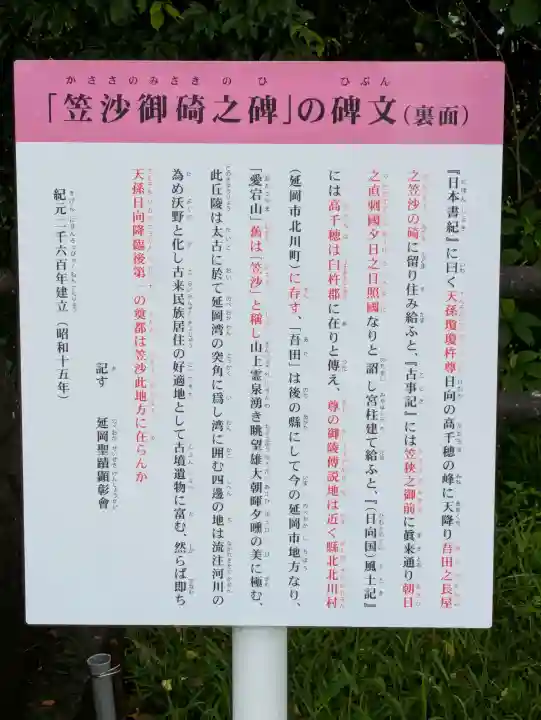 かささのみさきのひ ひぶん
「笠沙御碕之碑」の碑文（裏面）
『日本書紀』に曰く天孫瓊瓊杵尊日向の高千穂の峰に天降り吾田之長屋
之笠沙の碕に留り住み給ふと、『古事記』には笠狹之御前に眞来通り朝日
之直刺國夕日之日照國なりと 詔し宮柱建て給ふと、「（日向国）風土記』
には高千穂は臼杵郡に在りと傳え、尊の御陵傳説地は近く縣北北川村
（延岡市北川町）に存す、「吾田」は後の縣にして今の延岡市地方なり、
「愛宕山」舊は「笠沙」と稱し山上霊泉湧き眺望雄大朝暉夕曛の美に極む、
此丘陵は太古に於て延岡湾の突角に爲し湾に囲む四邊の地は流注河川の
為め沃野と化し古来民族居住の好適地として古墳遺物に富む、然らば即ち
天孫日向降臨後第一の奠都は笠沙此地方に在らんか
記す 延岡聖蹟顯彰會
紀元二千六百年建立（昭和十五年）